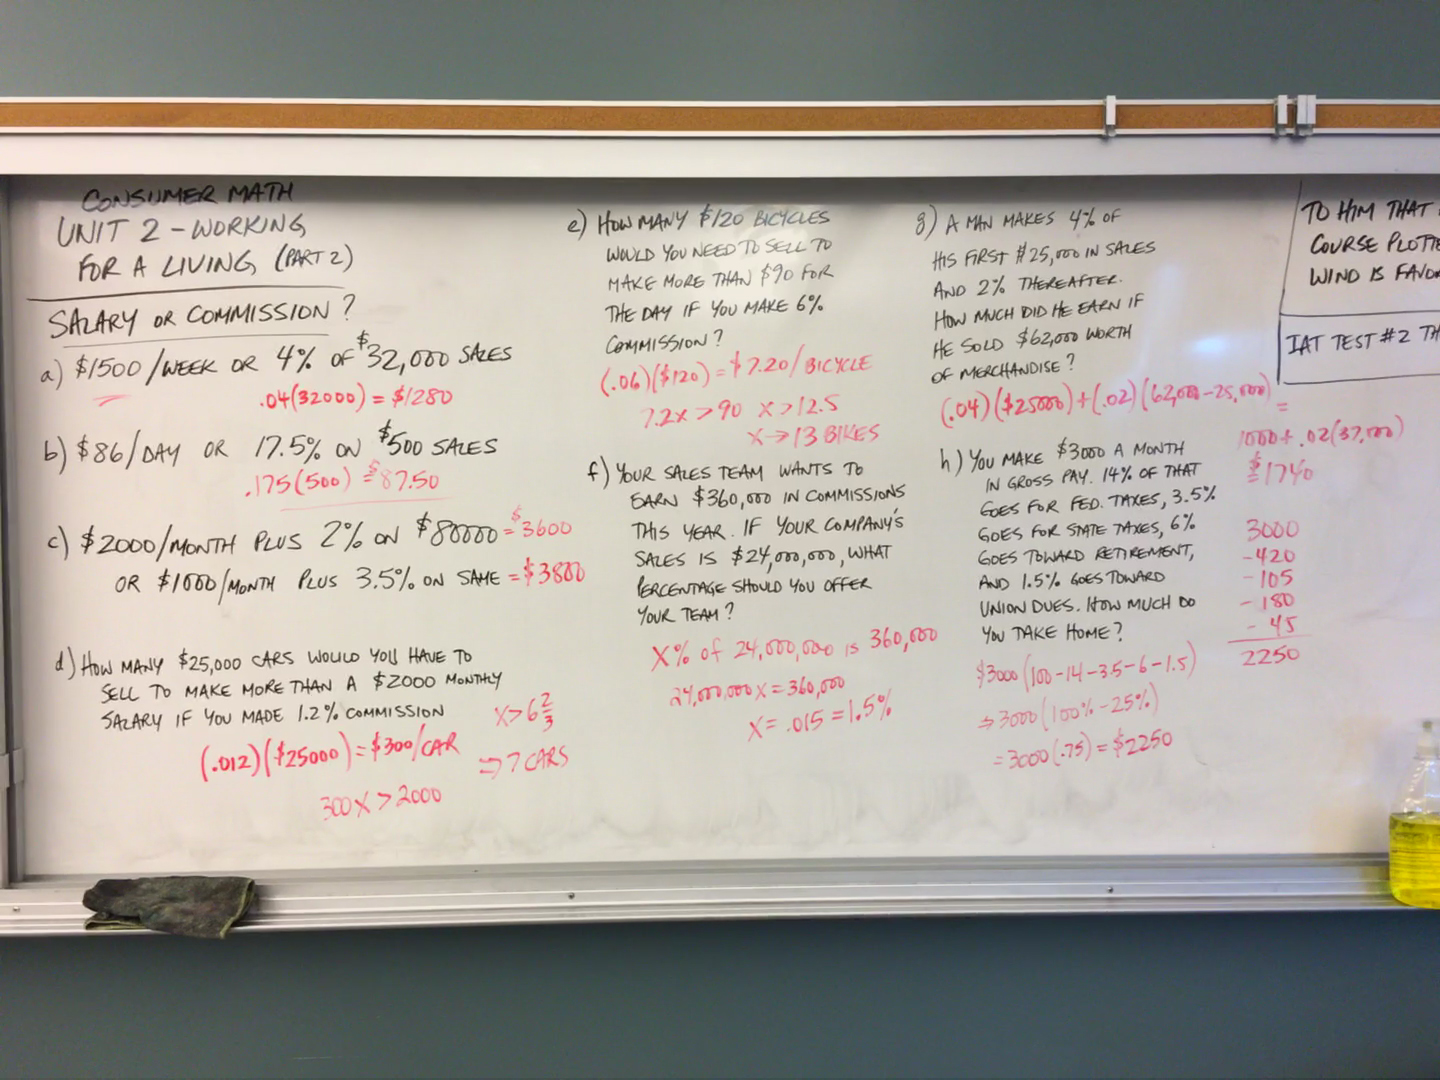 CONSUMER MATH
UNIT 2 - WORKING
FOR A LIVING (PART 2)
SALARY OR COMMISSION?
a) $1500/WEEK OR 4% OF $32,000 SALES
.04(32000) = $1280
b) $86/DAY OR 17.5% ON $500 SALES
.175(500) = $87.50
c) $2000/MONTH PLUS 2% ON $80000 = $3600
OR $1000/MONTH PLUS 3.5% ON SAME = $3800
d) HOW MANY $25,000 CARS WOULD YOU HAVE TO
SELL TO MAKE MORE THAN A $2000 MONTHLY
SALARY IF YOU MADE 1.2% COMMISSION
(.012)($25000) = $300/CAR
300X > 2000
X > 6 2/3
⇒ 7 CARS
e) HOW MANY $120 BICYCLES
WOULD YOU NEED TO SELL TO
MAKE MORE THAN $90 FOR
THE DAY IF YOU MAKE 6%
COMMISSION?
(.06)($120) = $7.20/BICYCLE
7.2x > 90 X > 12.5
X → 13 BIKES
f) YOUR SALES TEAM WANTS TO
EARN $360,000 IN COMMISSIONS
THIS YEAR. IF YOUR COMPANY'S
SALES IS $24,000,000, WHAT
PERCENTAGE SHOULD YOU OFFER
YOUR TEAM?
X% of 24,000,000 is 360,000
24,000,000x = 360,000
X = .015 = 1.5%
g) A MAN MAKES 4% OF
HIS FIRST $25,000 IN SALES
AND 2% THEREAFTER.
HOW MUCH DID HE EARN IF
HE SOLD $62,000 WORTH
OF MERCHANDISE?
(.04)($25000) + (.02)(62,000-25,000) =
1000 + .02(37,000)
= $1740
h) YOU MAKE $3000 A MONTH
IN GROSS PAY. 14% OF THAT
GOES FOR FED. TAXES, 3.5%
GOES FOR STATE TAXES, 6%
GOES TOWARD RETIREMENT,
AND 1.5% GOES TOWARD
UNION DUES. HOW MUCH DO
YOU TAKE HOME?
$3000(100-14-3.5-6-1.5)
⇒ 3000(100%-25%)
= 3000(.75) = $2250
3000
-420
-105
-180
-45
2250
TO HIM THAT
COURSE PLOTTE
WIND IS FAVO
IAT TEST #2 TH